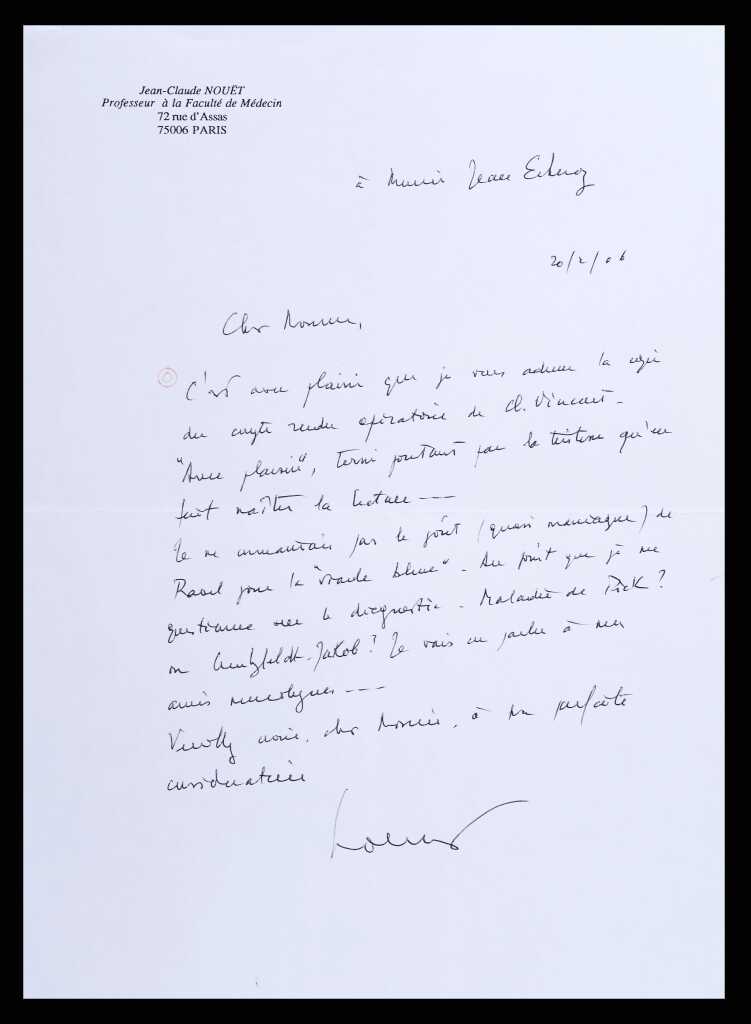 Jean-Claude NOUËT
Professeur à la Faculté de Médecin
72 rue d'Assas
75006 PARIS
à Monsieur Jean Echenoz
20/2/06
Cher Monsieur,
C'est avec plaisir que je vous adresse la copie
du compte rendu opératoire de Cl. Vincent -
"Avec plaisir", terni pourtant par la tristesse qu'en
fait naître la lecture ---
Je ne connaissais pas le goût (quasi maniaque) de
Ravel pour la "viande bleue" - Au point que je me
questionne sur le diagnostic - Maladie de Pick ?
ou Creutzfeldt-Jakob ? Je vais en parler à mes
amis neurologues ---
Veuillez croire, cher Monsieur, à ma parfaite
considération